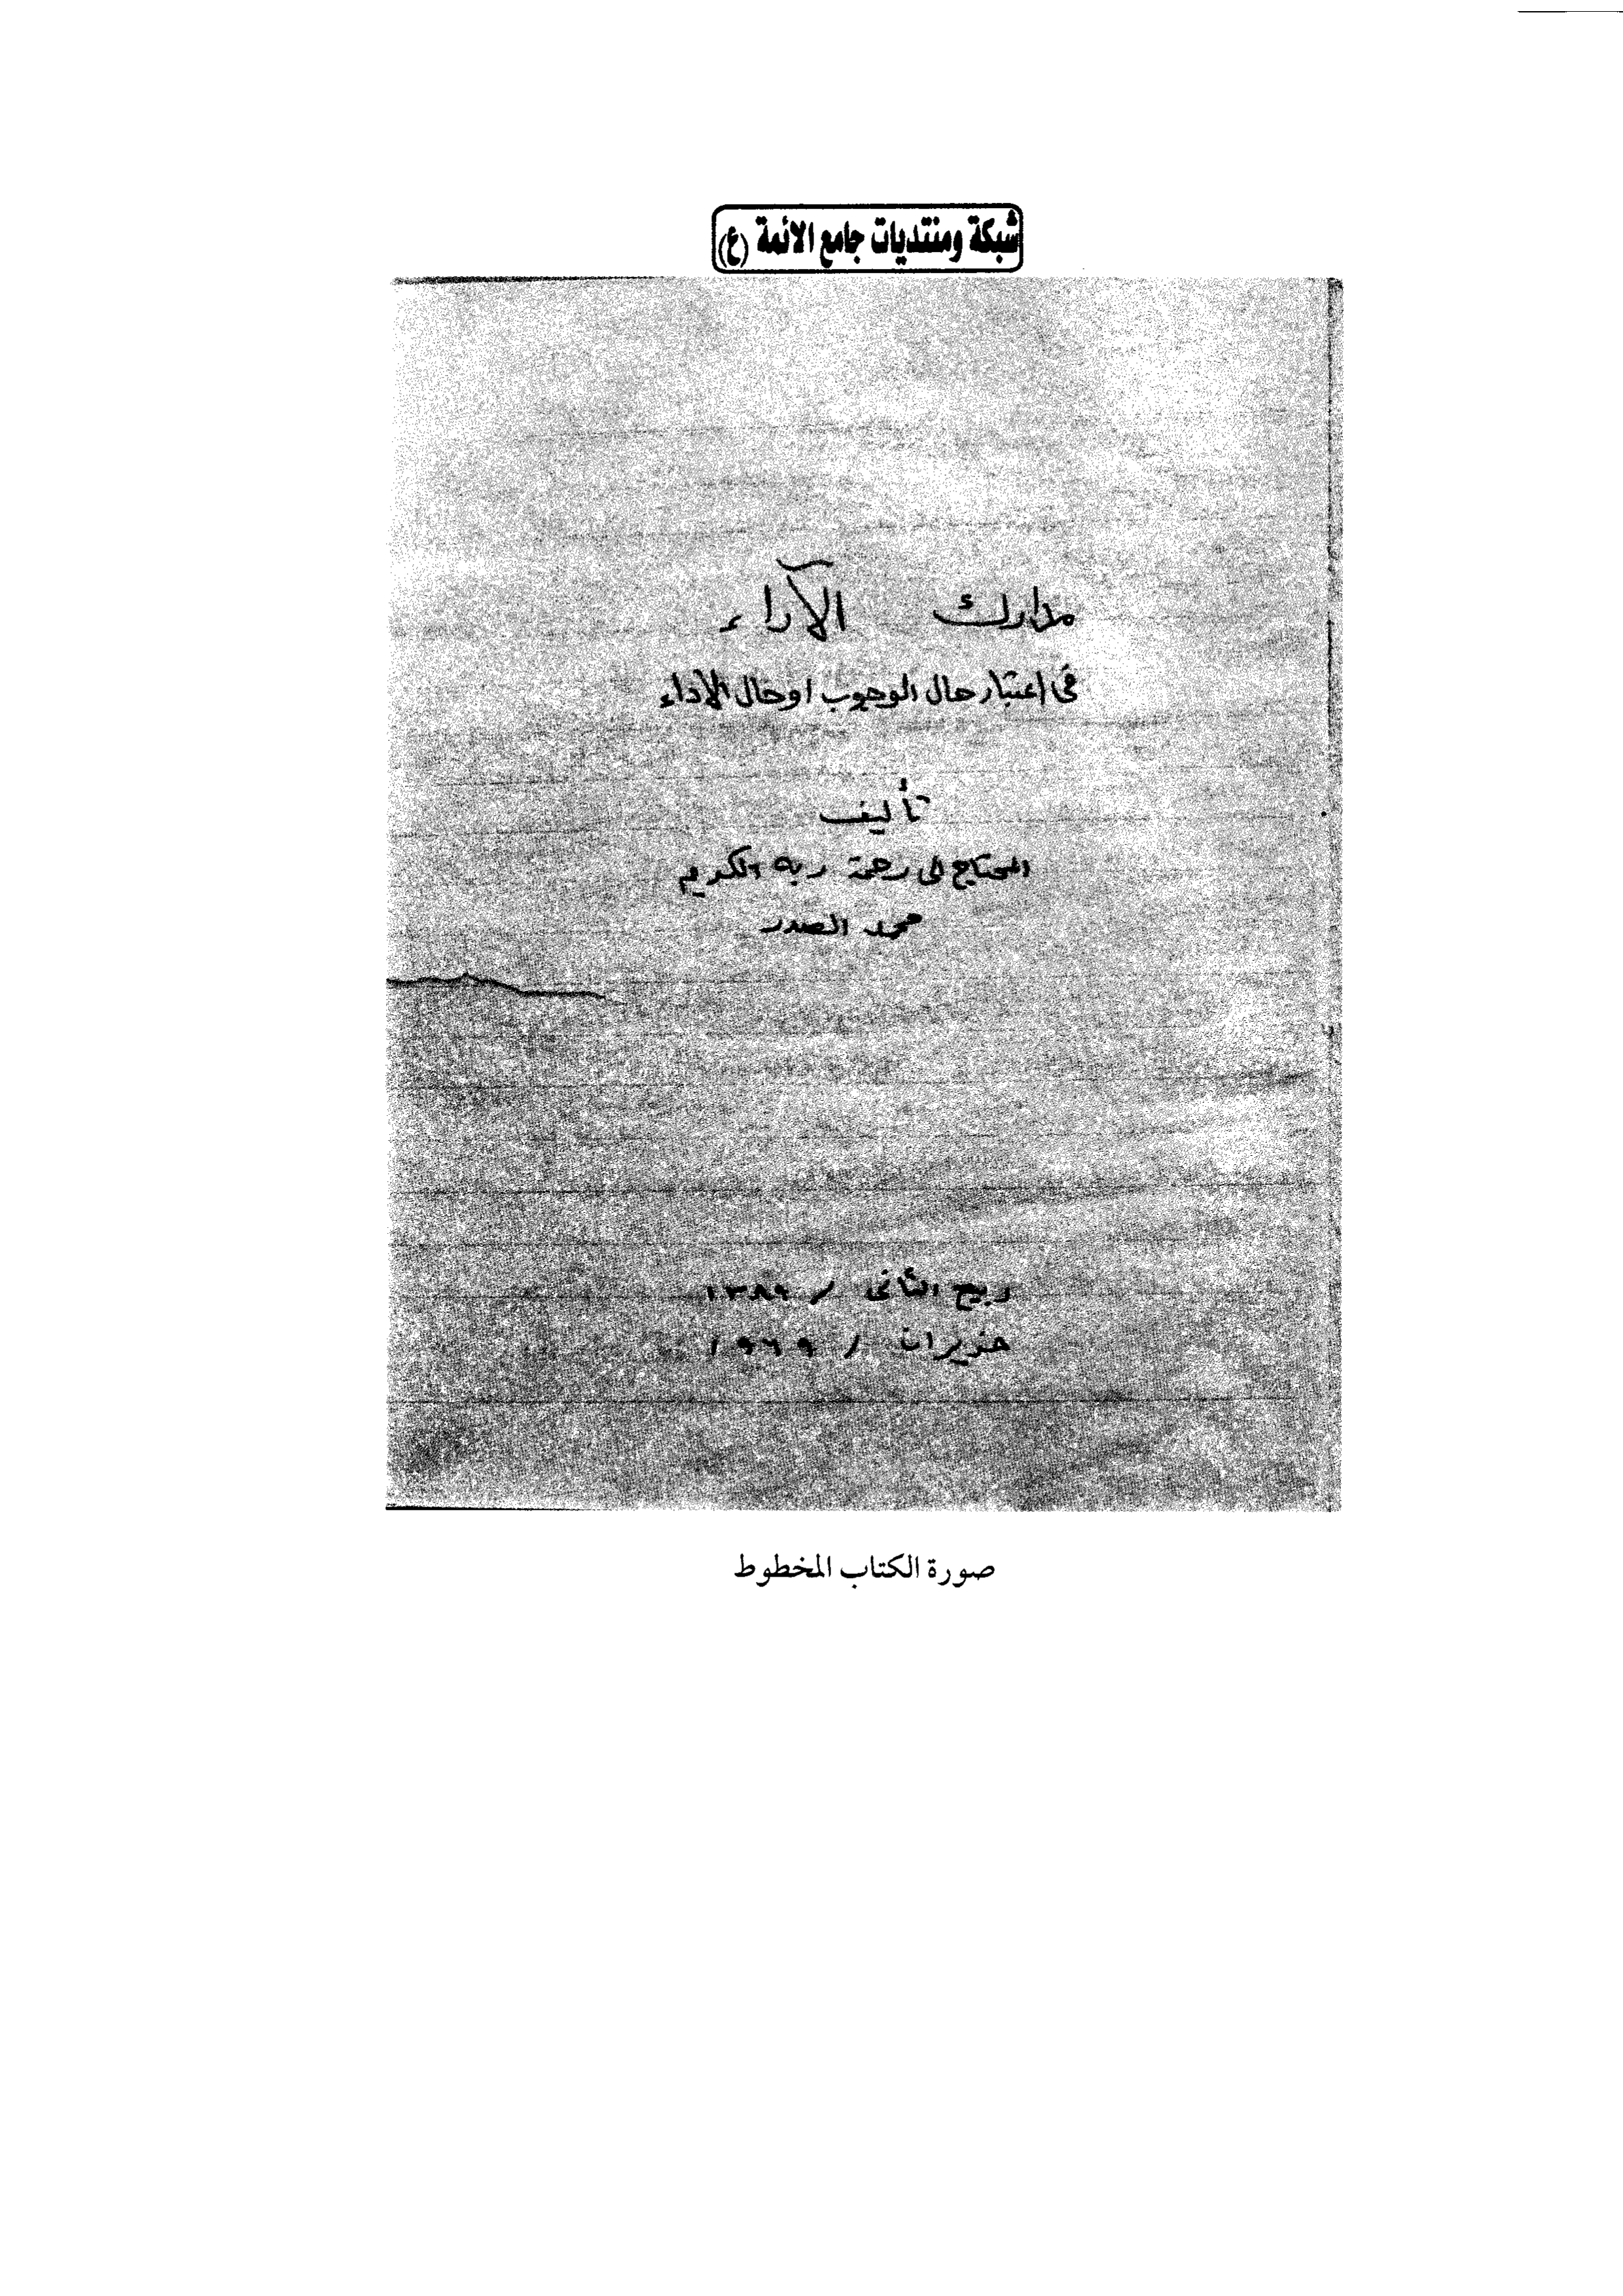 شبكة ومنتديات جامع الائمة (ع)
مدارك الآراء
في اعتبار حال الوجوب او حال الاداء
تأليف
المحتاج الى رحمة ربه الكريم
محمد الصدر
ربيع الثاني / ١٣٨٩
حزيران / ١٩٦٩
صورة الكتاب المخطوط